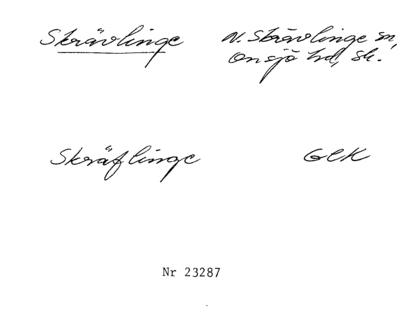 Skrävlinge N. Skrävlinge sn,
Onsjö hd, Sk.
Skräflinge GEK
Nr 23287